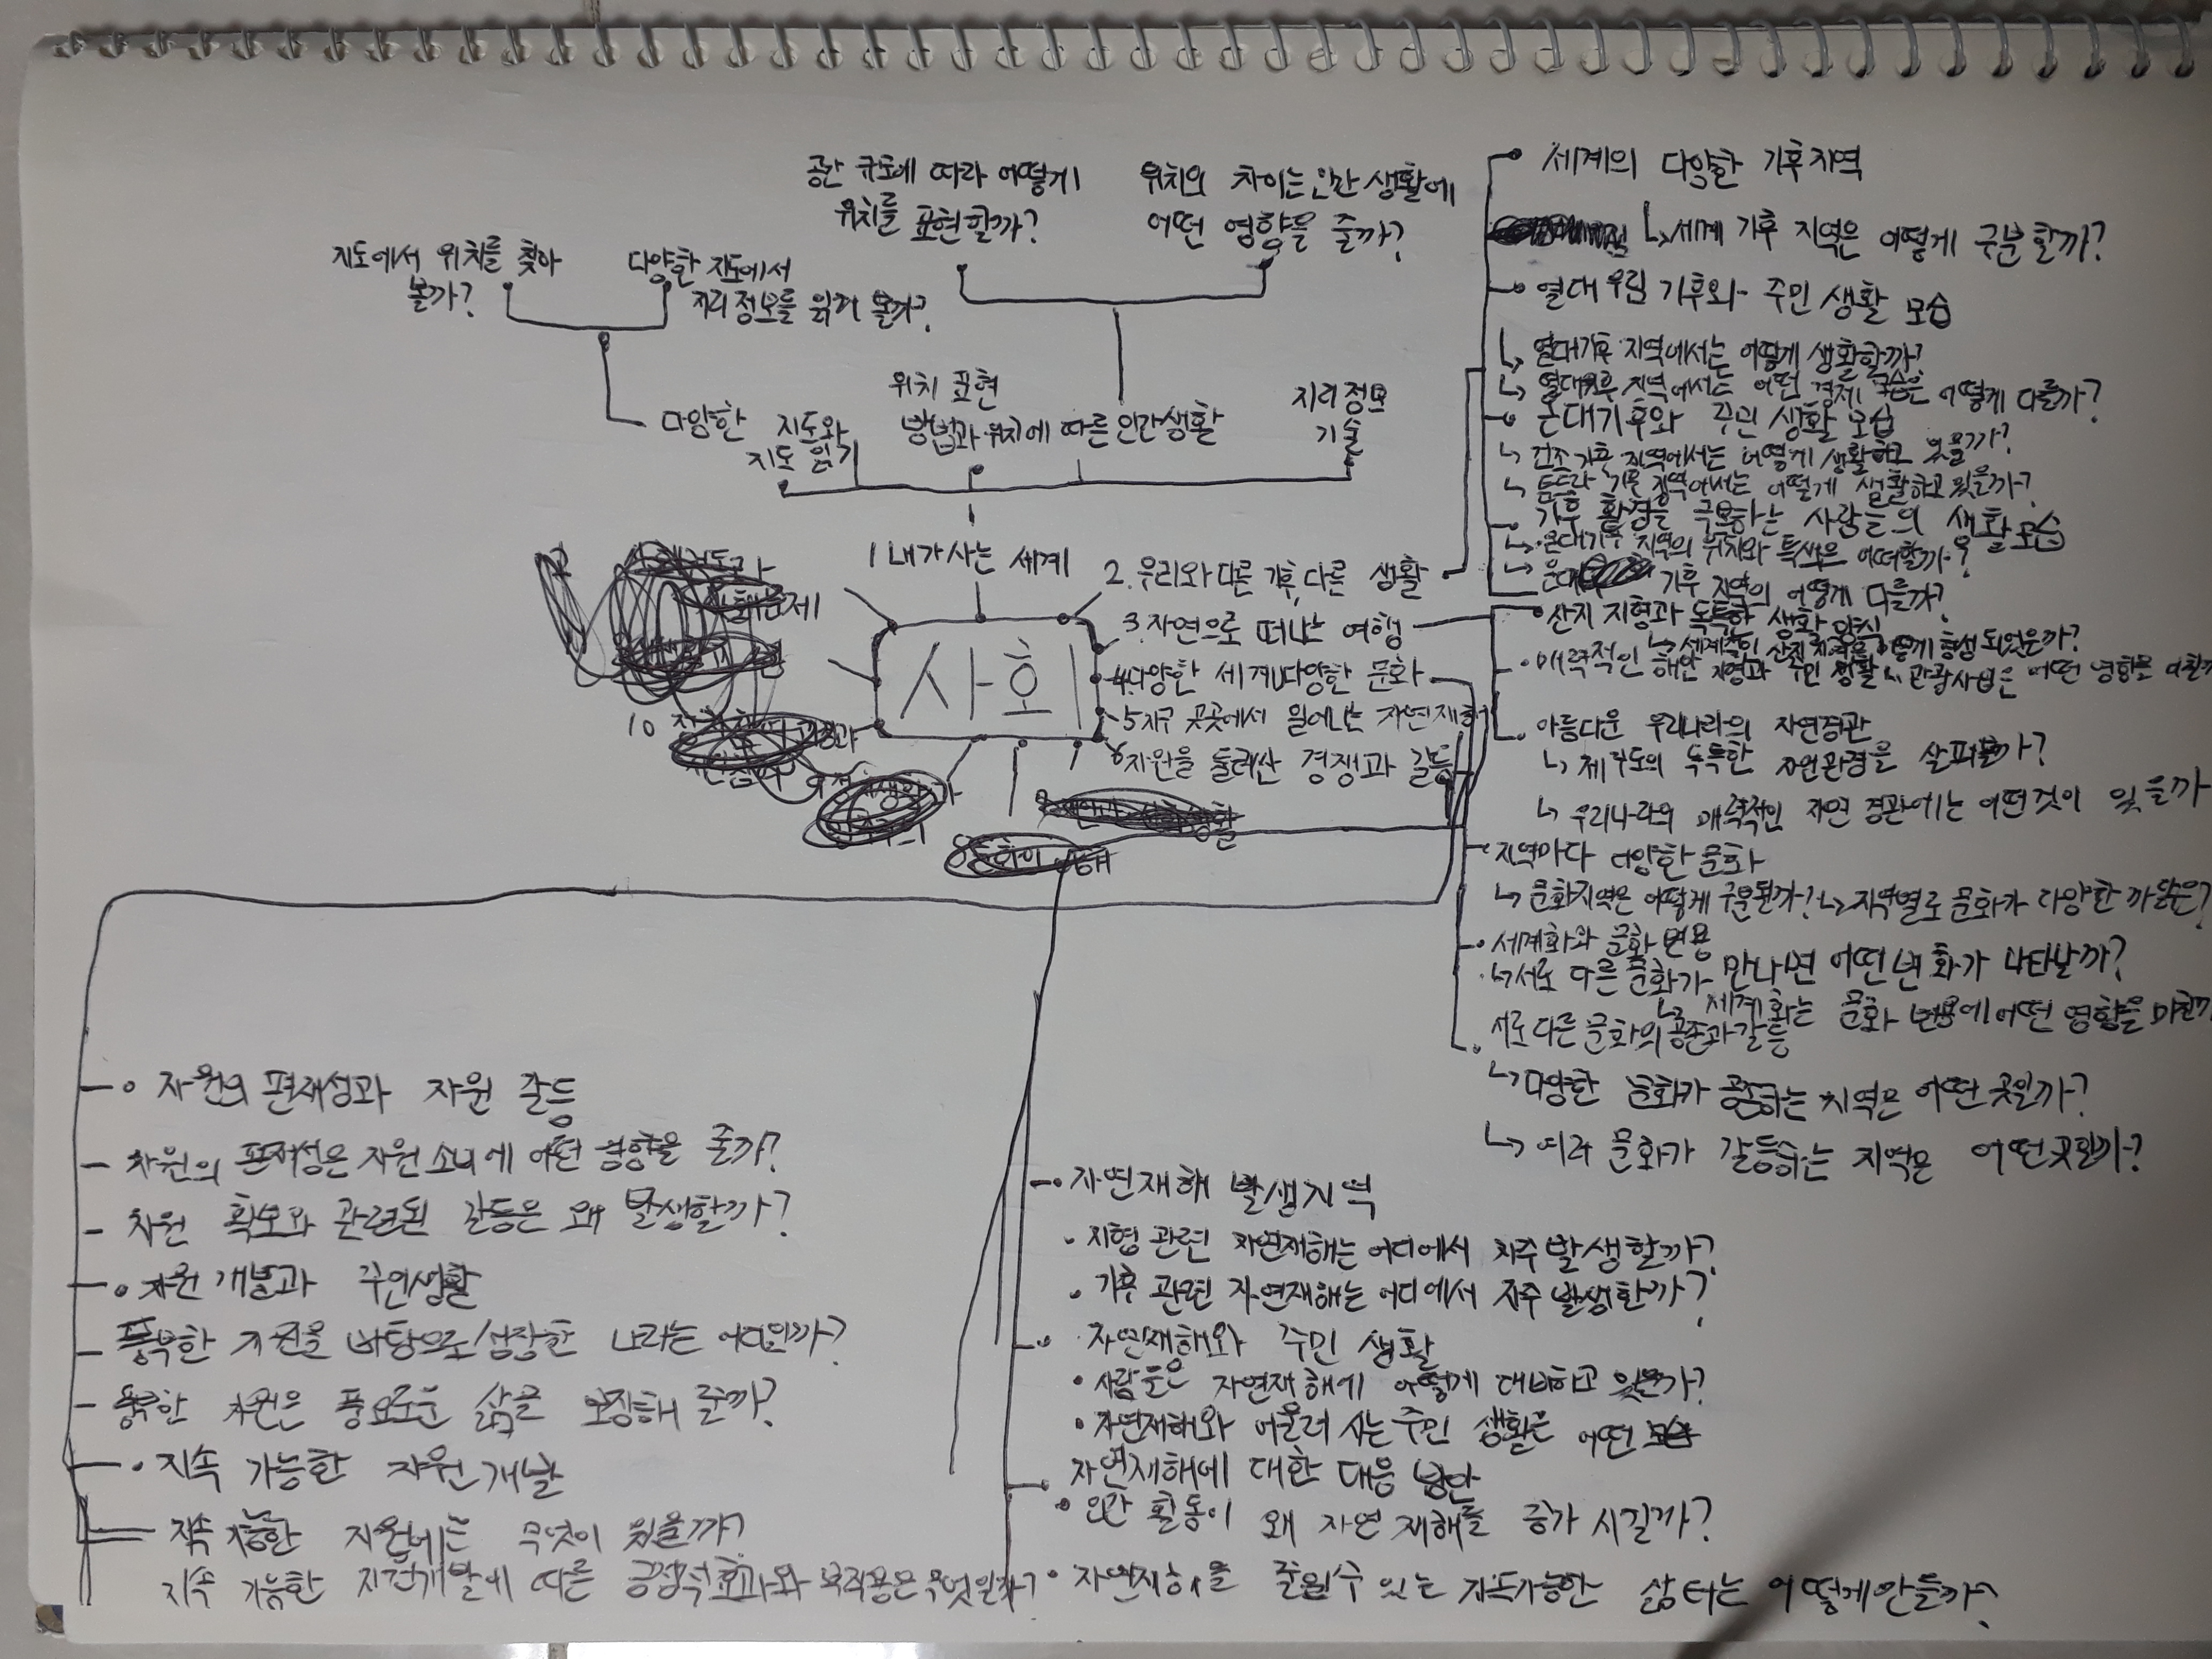 공간 규모에 따라 어떻게
위치를 표현할까?
위치의 차이는 인간 생활에
어떤 영향을 줄까?
지도에서 위치를 찾아
볼까?
다양한 지도에서
지리 정보를 읽어 볼까?
다양한 지도와
지도 읽기
위치 표현
방법과 위치에 따른 인간생활
지리 정보
기술
사회
1 내가 사는 세계
2. 우리와 다른 기후, 다른 생활
3. 자연으로 떠나는 여행
4. 다양한 세계, 다양한 문화
5 지구 곳곳에서 일어나는 자연재해
6 자원을 둘러싼 경쟁과 갈등
10
세계의 다양한 기후지역
↳ 세계 기후 지역은 어떻게 구분할까?
열대 우림 기후와 주민 생활 모습
↳ 열대기후 지역에서는 어떻게 생활할까?
↳ 열대기후 지역에서는 어떤 경제 어떻게 다를까?
온대기후와 주민 생활 모습
↳ 건조 기후 지역에서는 어떻게 생활하고 있을까?
↳ 툰드라 기후 지역에서는 어떻게 생활하고 있을까?
기후 환경을 극복하는 사람들의 생활모습
↳ 온대기후 지역의 위치와 특색은 어떠할까?
↳ 온대 기후 지역의 어떻게 다를까?
산지 지형과 독특한 생활 양식
↳ 세계적인 산지 지형은 어떻게 형성 되었을까?
매력적인 해안 지형과 주민 생활 ↳ 관광산업은 어떤 영향을
아름다운 우리나라의 자연경관
↳ 제주도의 독특한 자연관경을 살펴볼까?
↳ 우리나라의 매력적인 자연 경관에는 어떤것이 있을까
지역마다 다양한 문화
↳ 문화지역은 어떻게 구분될까? ↳ 지역별로 문화가 다양한 까닭은?
세계화와 문화 변용
↳ 서로 다른 문화가 만나면 어떤변화가 나타날까?
↳ 세계화는 문화 변용에 어떤 영향을
서로 다른 문화의 공존과 갈등
↳ 다양한 문화가 공존하는 지역은 어떤 곳일까?
↳ 여러 문화가 갈등하는 지역은 어떤곳일까?
자원의 편재성과 자원 갈등
자원의 편재성은 자원 소비에 어떤 영향을 줄까?
자원 확보와 관련된 갈등은 왜 발생할까?
자원 개발과 주민생활
풍부한 자원을 바탕으로 성장한 나라는 어디일까?
풍족한 자원은 풍요로운 삶을 보장해 줄까?
지속 가능한 자원 개발
지속 가능한 자원에는 무엇이 있을까?
지속 가능한 자원개발에 따른 긍정적효과와 부작용은 무엇일까?
자연재해 발생지역
지형 관련 자연재해는 어디에서 자주 발생할까?
기후 관련 자연재해는 어디에서 자주 발생할까?
자연재해와 주민 생활
사람들은 자연재해에 어떻게 대비하고 있을까?
자연재해와 어울려 사는 주민 생활은 어떤 모습
자연재해에 대한 대응 방안
인간 활동이 왜 자연 재해를 증가 시킬까?
자연재해를 줄일수 있는 지속가능한 삶터는 어떻게만들까?